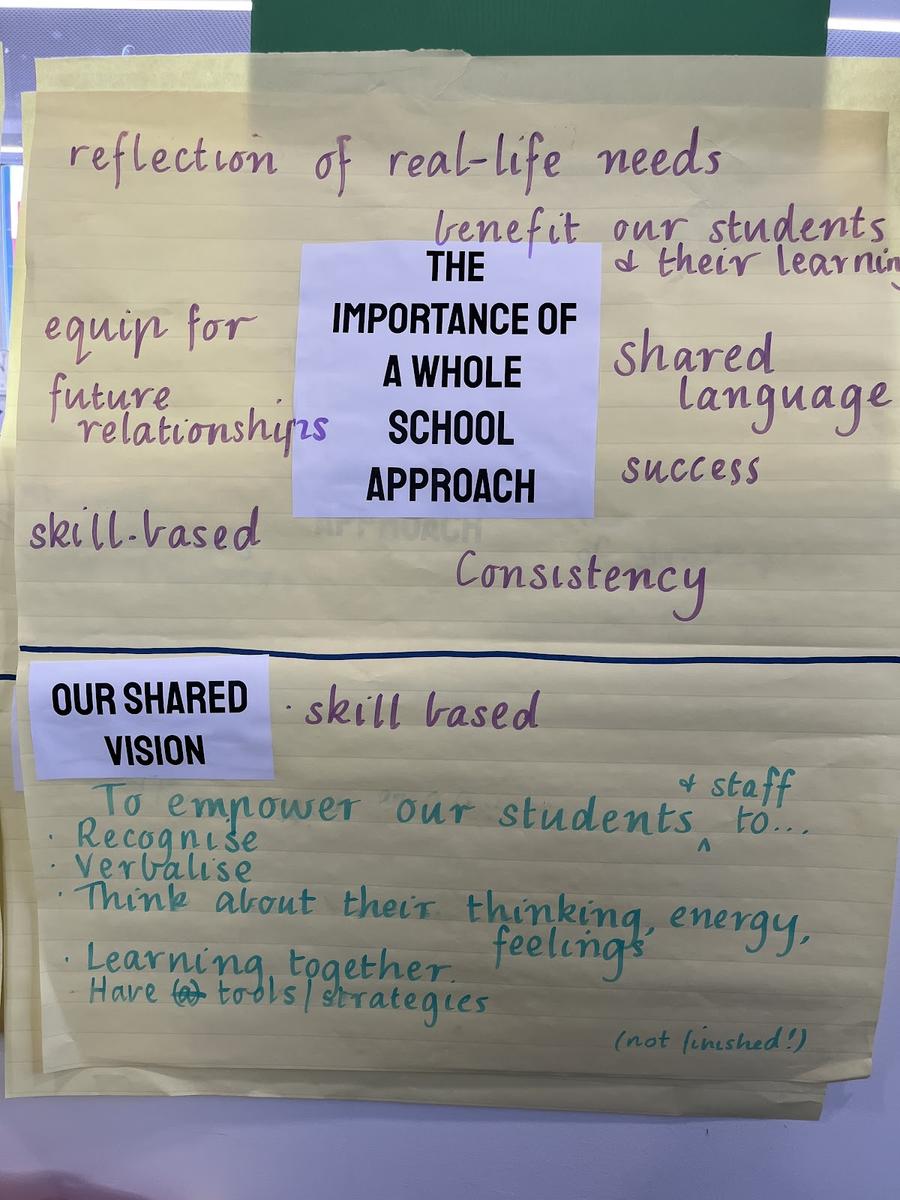 reflection of real-life needs
benefit our students
& their learning
THE
IMPORTANCE OF
A WHOLE
SCHOOL
APPROACH
equip for
future
relationships
skill-based
shared
language
success
Consistency
OUR SHARED
VISION
· skill based
& staff
To empower our students ^ to...
· Recognise
· Verbalise
· Think about their thinking, energy,
feelings
· Learning together.
Have (a) tools/strategies
(not finished!)